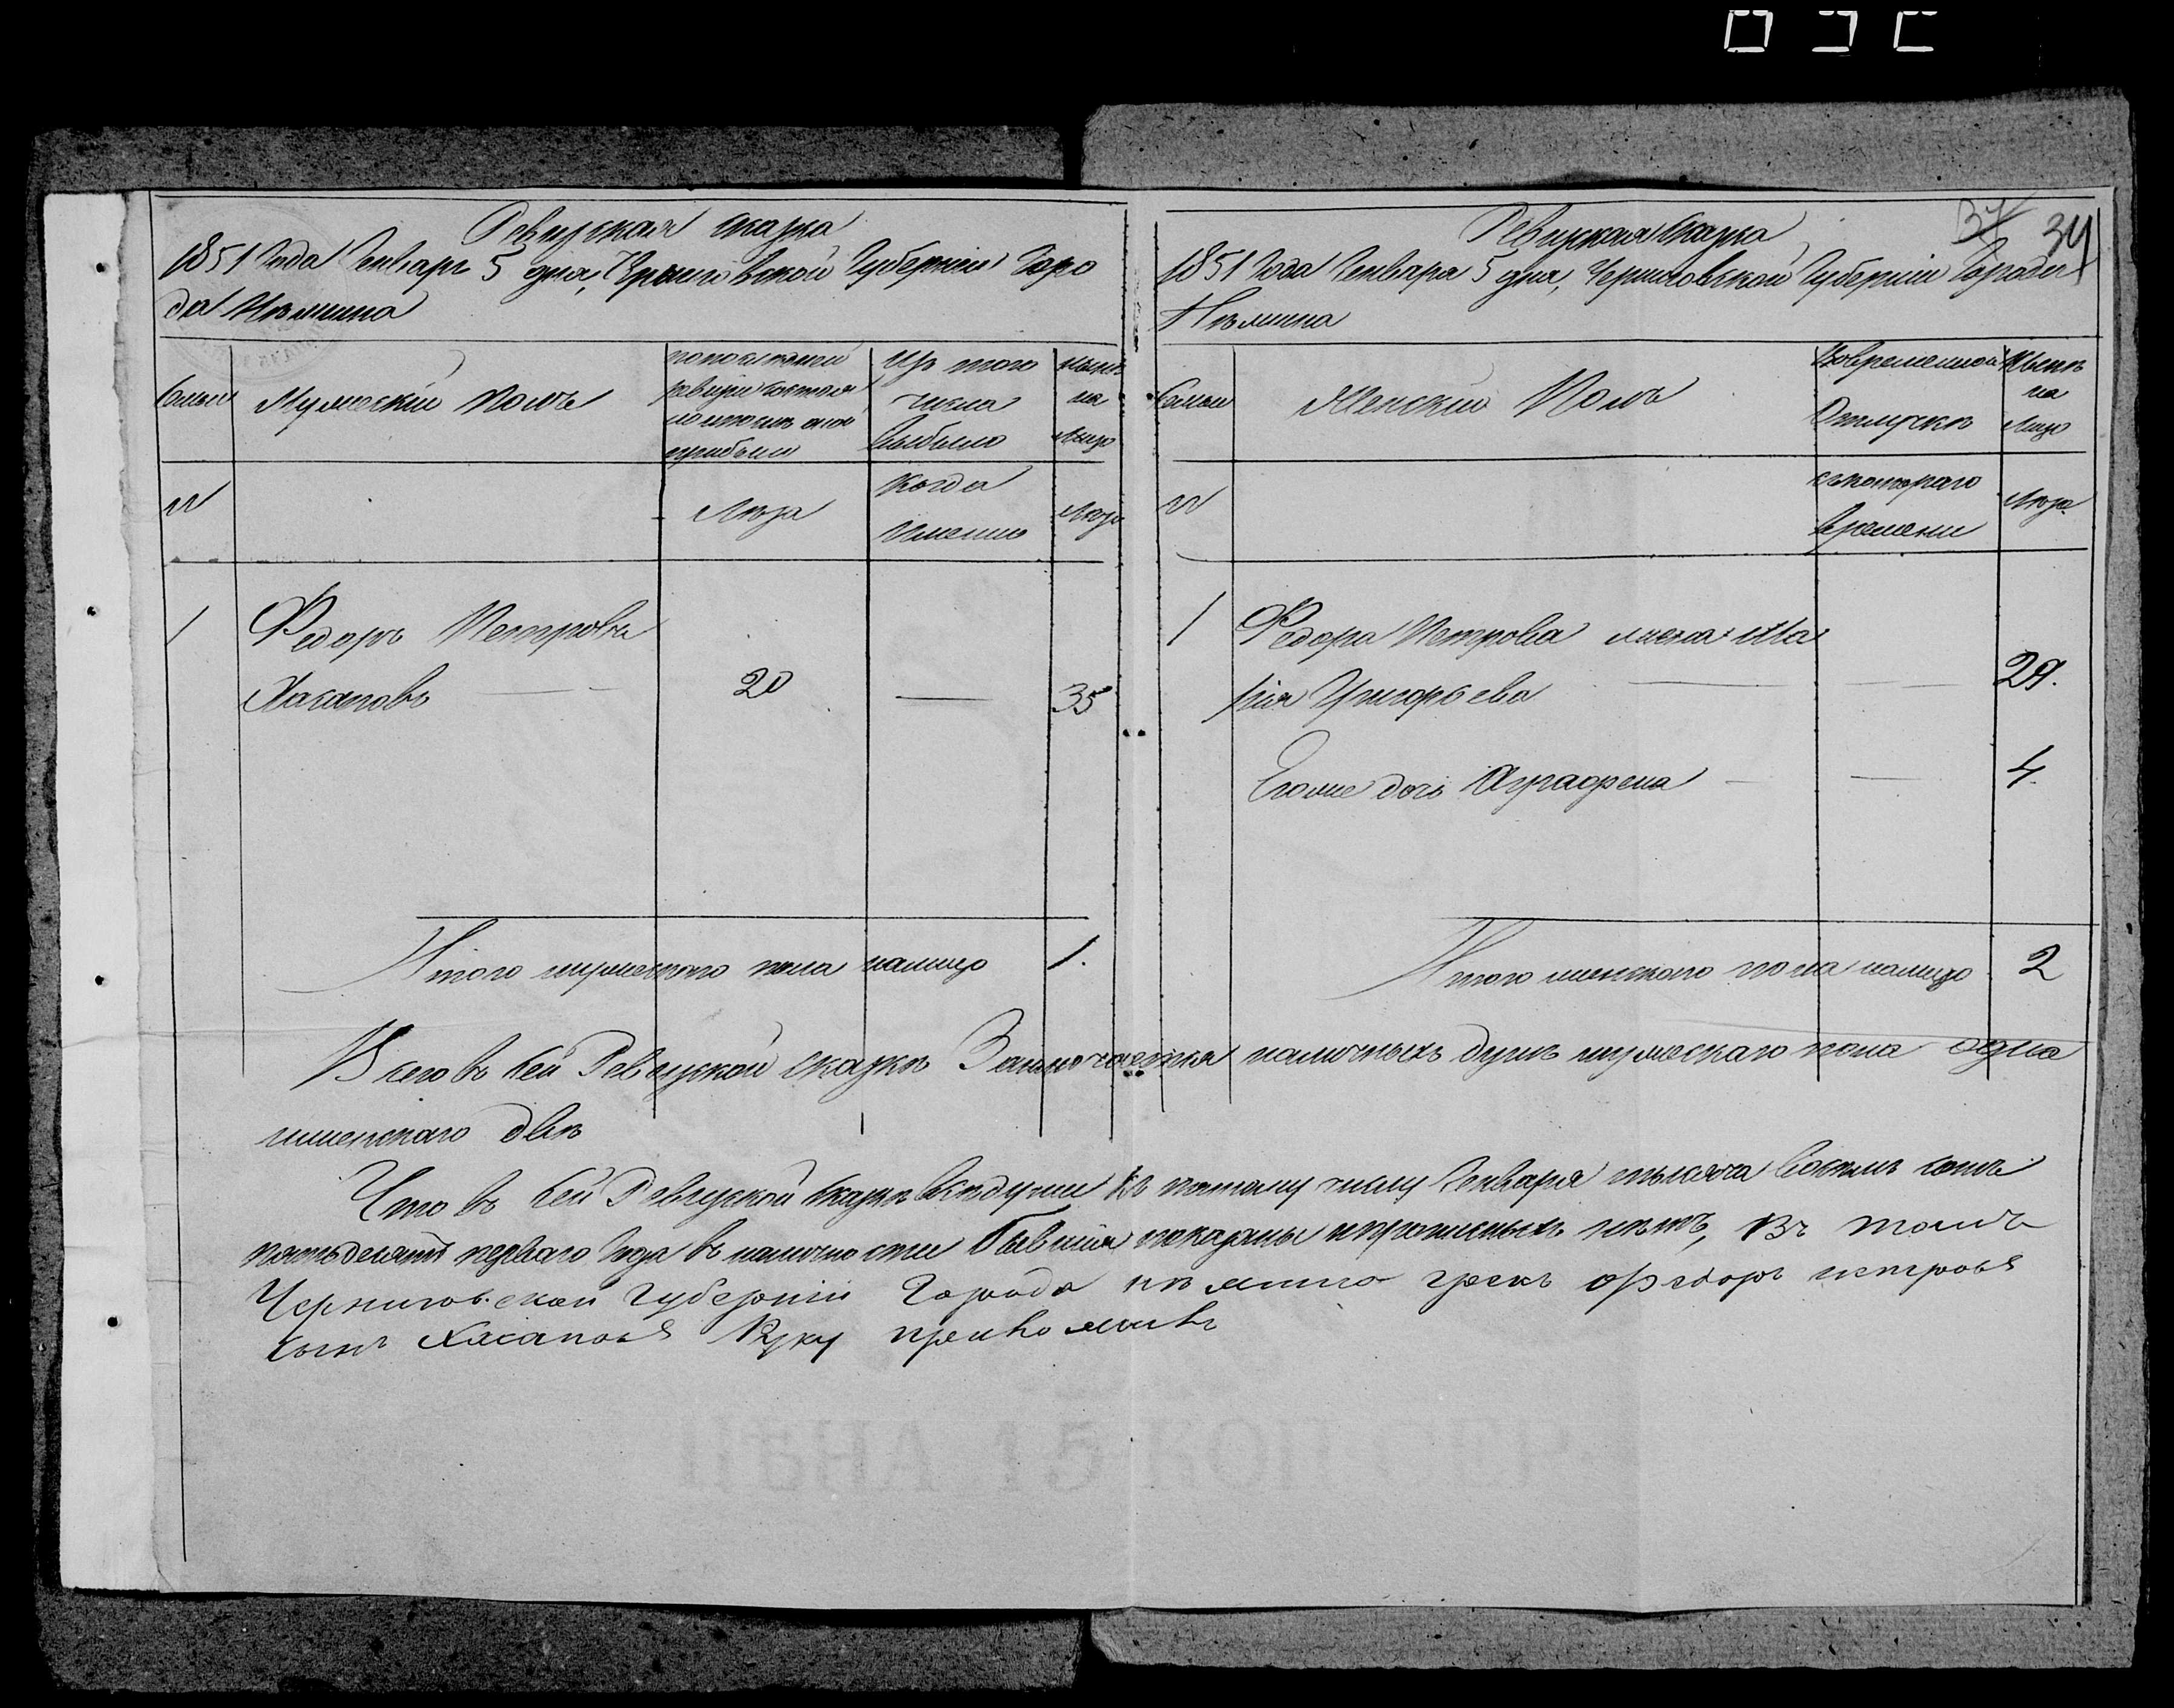 Ревизская сказка
1851 Года Генваря 5 дня, Черниговской Губернии Горо
да Нѣжина
Семьи
Мужескій полъ
по последней
ревизіи состоя
ло и после оной
прибыло
Изъ того
числа
выбыло
Нынѣ
на
лицо
№
Лѣта
Когда
Именно
Лѣта
1
Федоръ Петровъ
Хасаповъ 20 — 35
Итого мужескаго пола налицо 1.
Ревизская сказка
37 34
1851 Года Генваря 5 дня, Черниговской Губерніи Города
Нѣжина
Семьи
Женскій Полъ
Во временной
Отлучкѣ
Нынѣ
на
Лицо
№
съ котораго
времени
Лѣта
1
Федора Петрова жена Ма
рія Григорьева — — 29.
Егоже дочь Аграфена — — 4.
Итого женскаго пола налицо 2
Всего въ сей Ревизской сказкѣ Заключается наличныхъ душъ мужескаго пола одна
женскаго двѣ
Что въ сей Ревизской сказкѣ всѣ души къ пятому числу Генваря тысяча восемь сотъ
пятьдесятъ перваго года въ наличности бывшия показаны и прописныхъ нѣтъ, Въ томъ
Черниговской Губерніи Города нѣжина грекъ федоръ петровъ
сынъ Хасаповъ Руку приложилъ